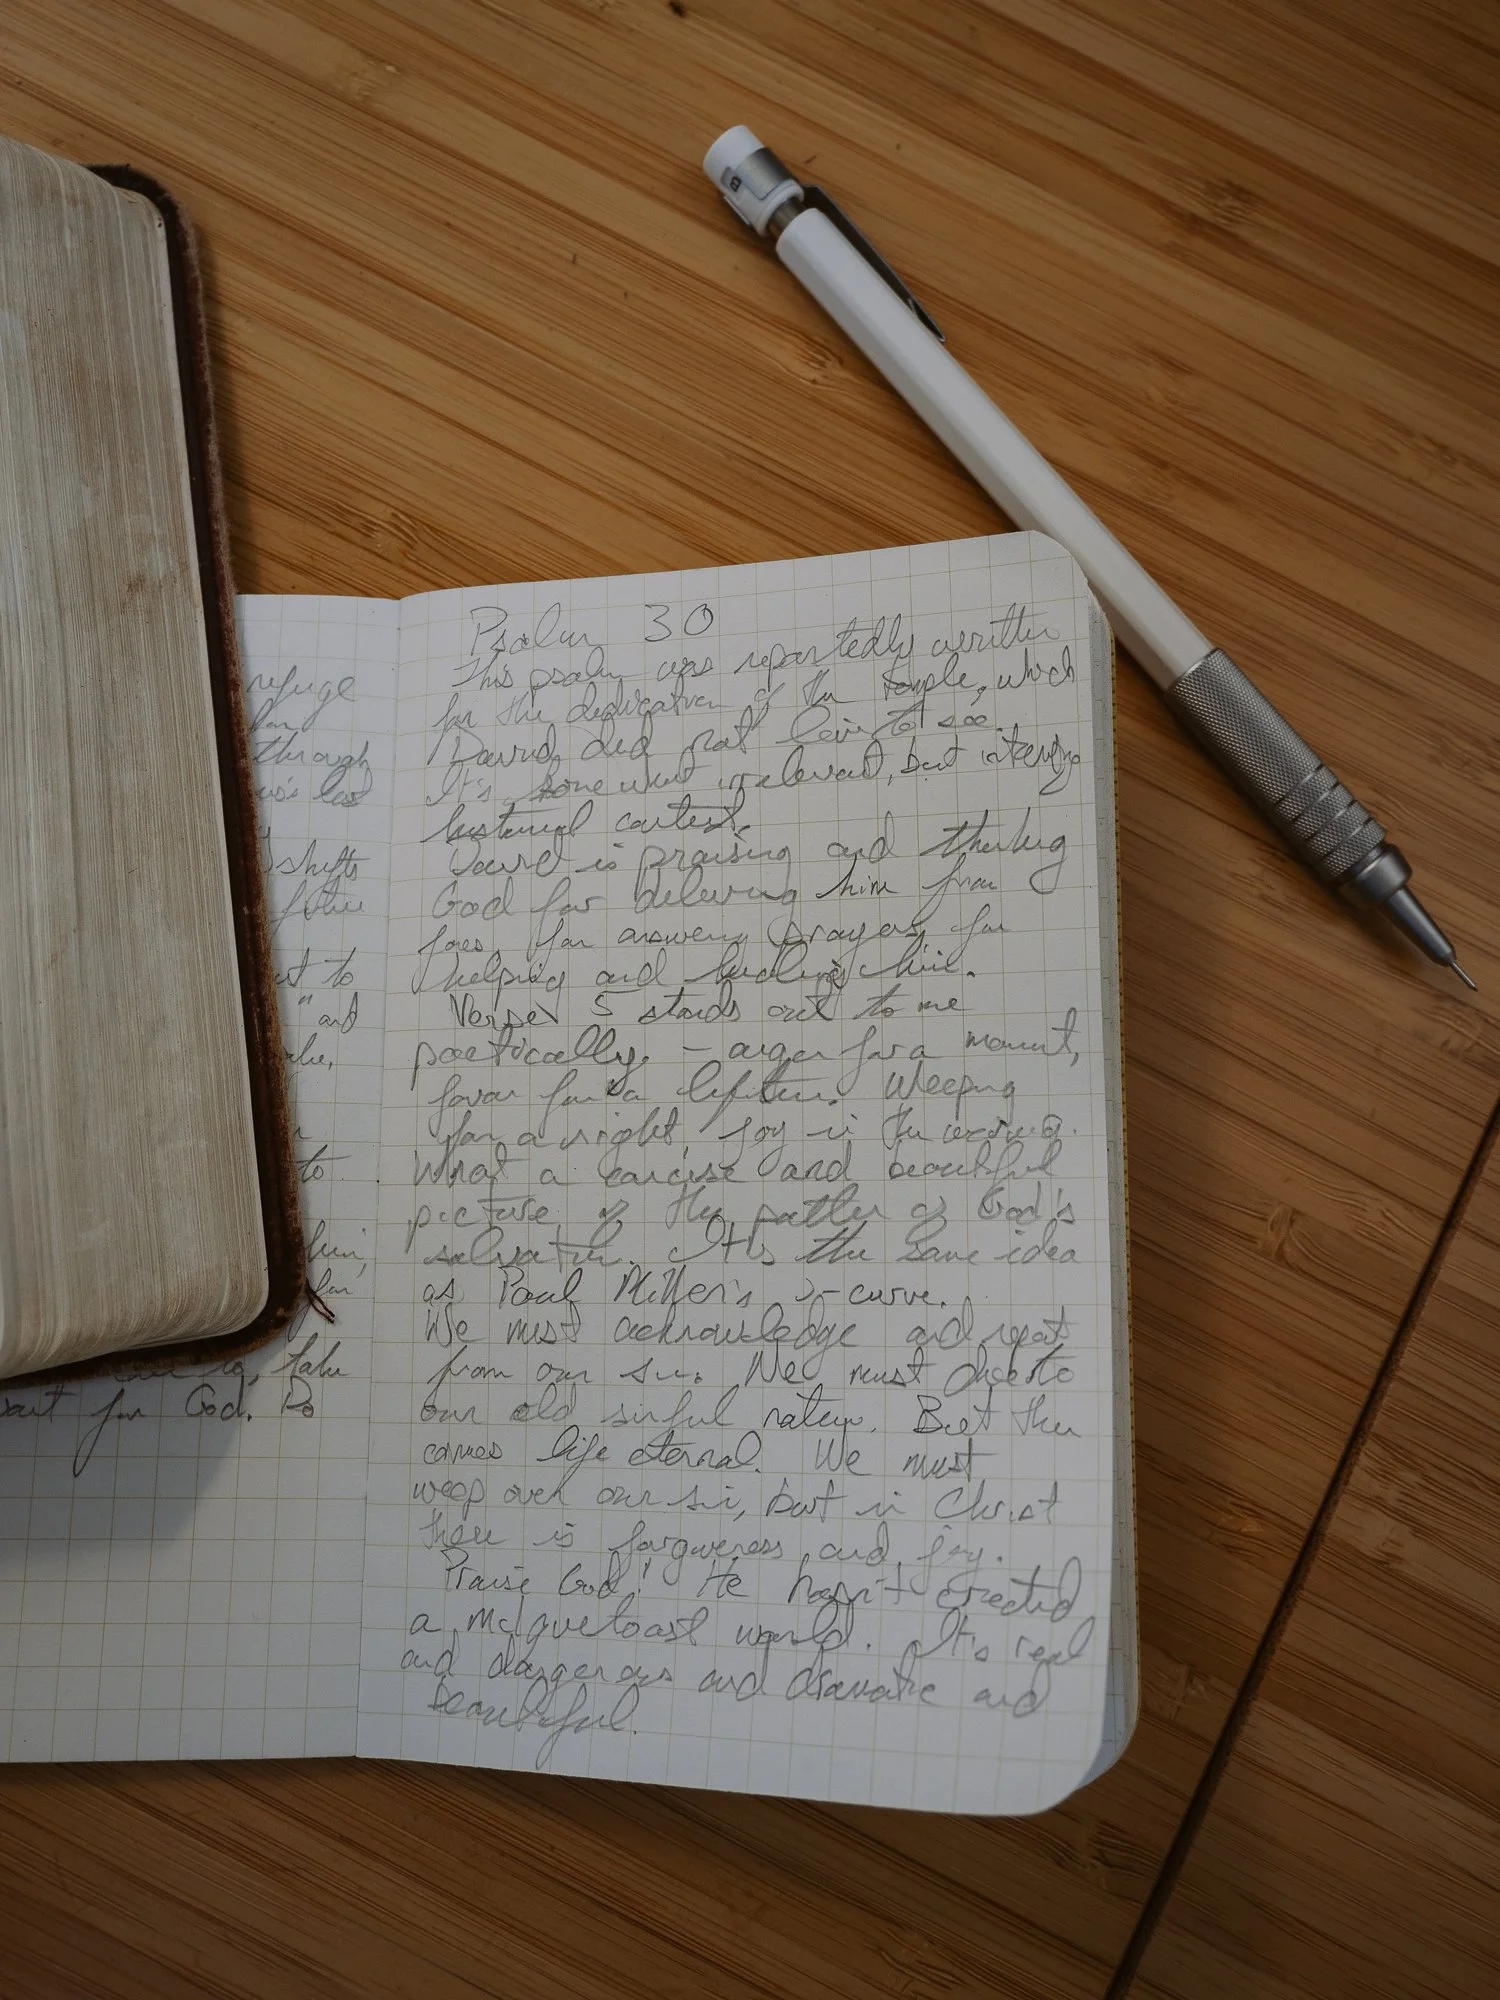 refuge
through
shifts
to
" and
to
him,
for
, take
wait for God. Do
Psalm 30
This psalm was reportedly written
for the dedication of the temple, which
David did not live to see.
It's somewhat irrelevant, but interesting
historical context.
David is praising and thanking
God for delivering him from
foes, for answering prayers, for
helping and healing him.
Verse 5 stands out to me
poetically. - anger for a moment,
favor for a lifetime. Weeping
for a night, joy in the morning.
What a concise and beautiful
picture of the pattern of God's
salvation. It's the same idea
as Paul Miller's J-curve.
We must acknowledge and repent
from our sin. We must die to
our old sinful nature. But then
comes life eternal. We must
weep over our sin, but in Christ
there is forgiveness and joy.
Praise God! He hasn't created
a milquetoast world. It's real
and dangerous and dramatic and
beautiful.